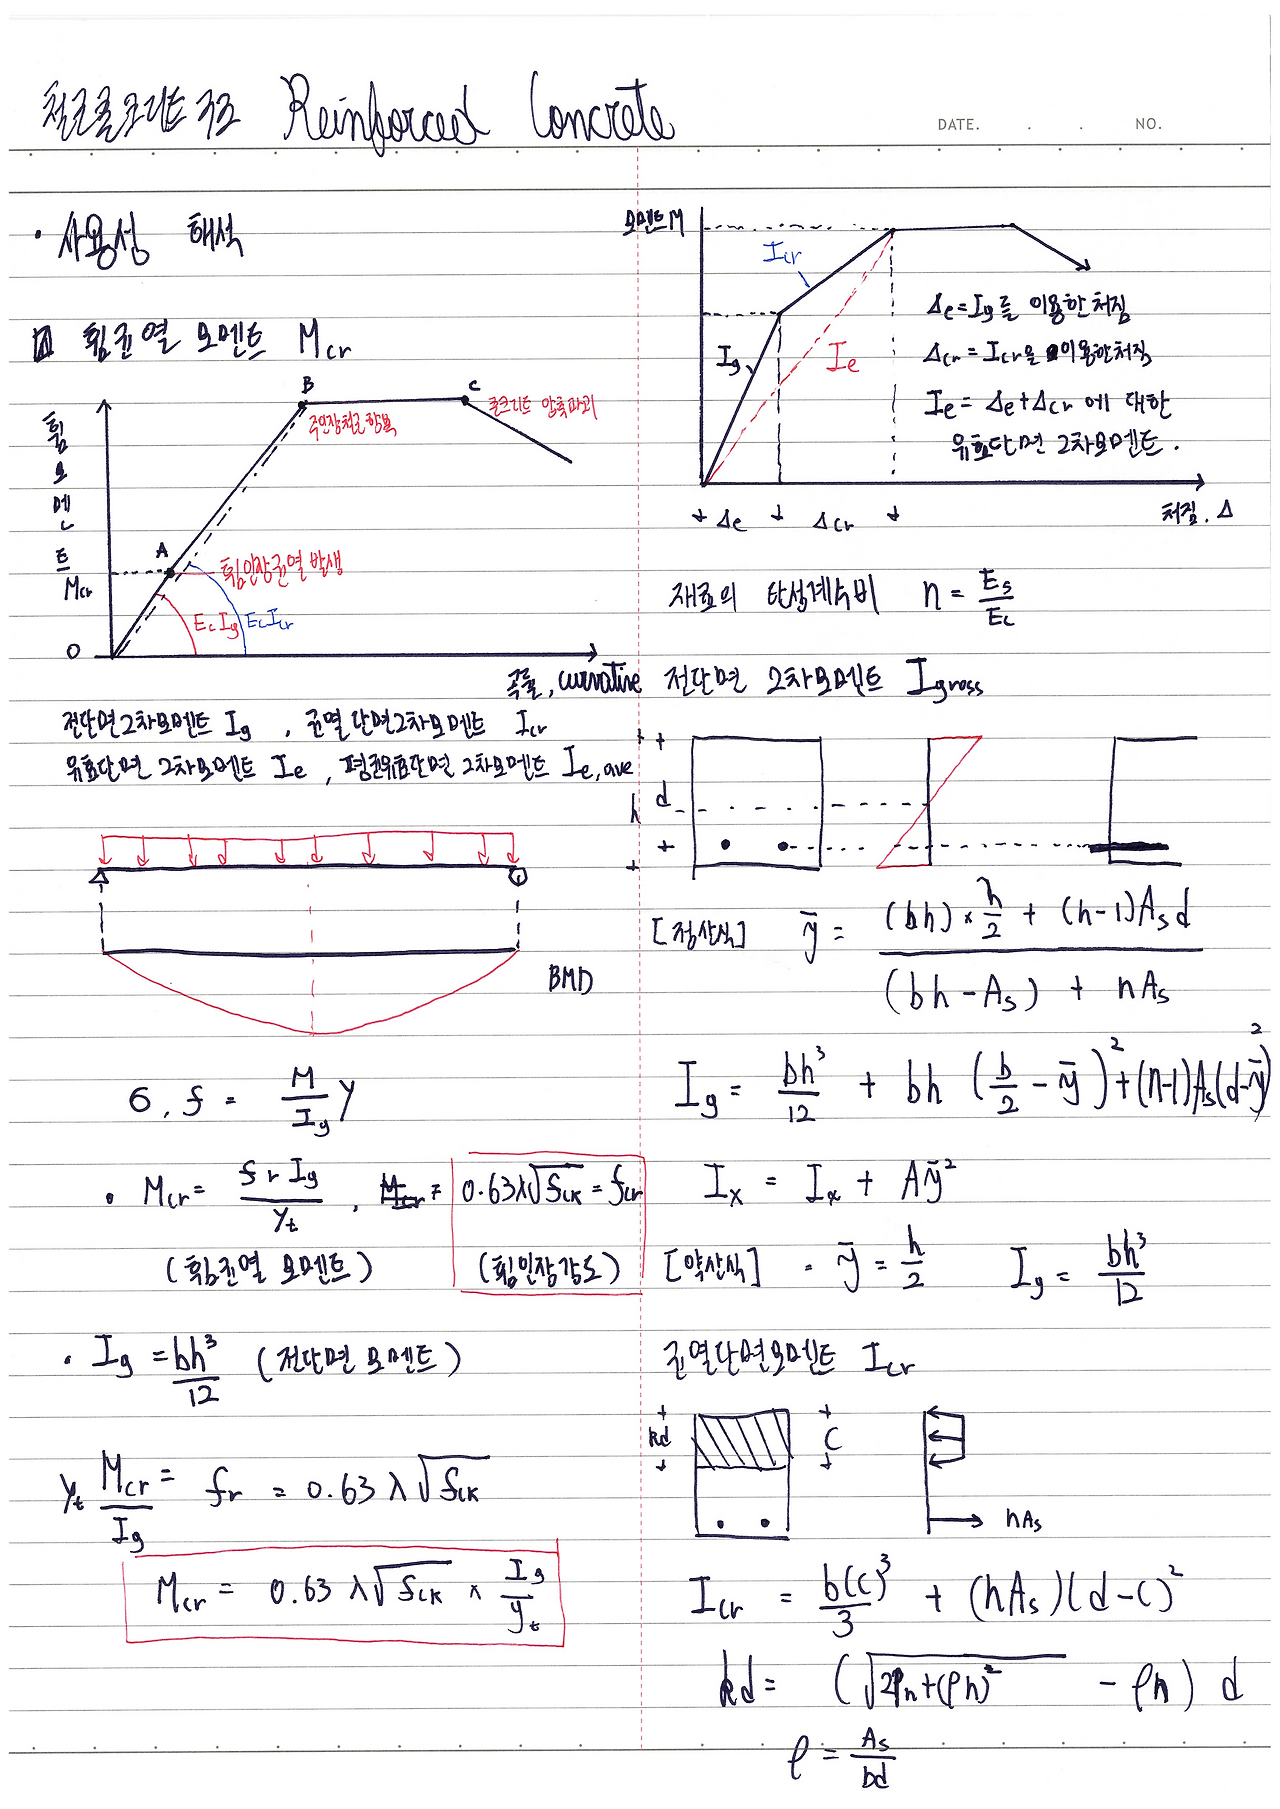 철근콘크리트구조 Reinforced Concrete
DATE. . . NO.
· 사용성 해석
1 휨균열 모멘트 Mcr
휨모멘트
B
C
주인장철근항복
콘크리트 압축파괴
A
휨인장균열발생
Mcr
EcIg
EcIcr
0
곡률, curvative
전단면2차모멘트 Ig , 균열단면2차모멘트 Icr
유효단면 2차모멘트 Ie , 평균유효단면 2차모멘트 Ie,ave
BMD
б, f = M/Ig y
· Mcr = fr Ig / yt , 0.63λ√fck = fcr
(휨균열 모멘트) (휨인장강도)
· Ig = bh³/12 (전단면 모멘트)
yt Mcr/Ig = fr = 0.63 λ √fck
Mcr = 0.63 λ√fck × Ig/yt
모멘트 M
Icr
Ig
Ie
Δe = Ig를 이용한처짐
Δcr = Icr을 이용한처짐
Ie = Δe+Δcr 에 대한
유효단면 2차모멘트.
Δe Δcr
처짐. Δ
재료의 탄성계수비 n = Es/Ec
전단면 2차모멘트 Igross
h d
[정산식] ȳ = ((bh)×h/2 + (n-1)As d) / ((bh-As) + nAs)
Ig = bh³/12 + bh (b/2 - ȳ)² + (n-1)As(d-ȳ)²
Ix = Ix + Aȳ²
[약산식] · ȳ = h/2 Ig = bh³/12
균열단면모멘트 Icr
kd
C
nAs
Icr = b(c)³/3 + (nAs)(d-c)²
kd = (√2ρn+(ρn)² - ρn) d
ρ = As/bd